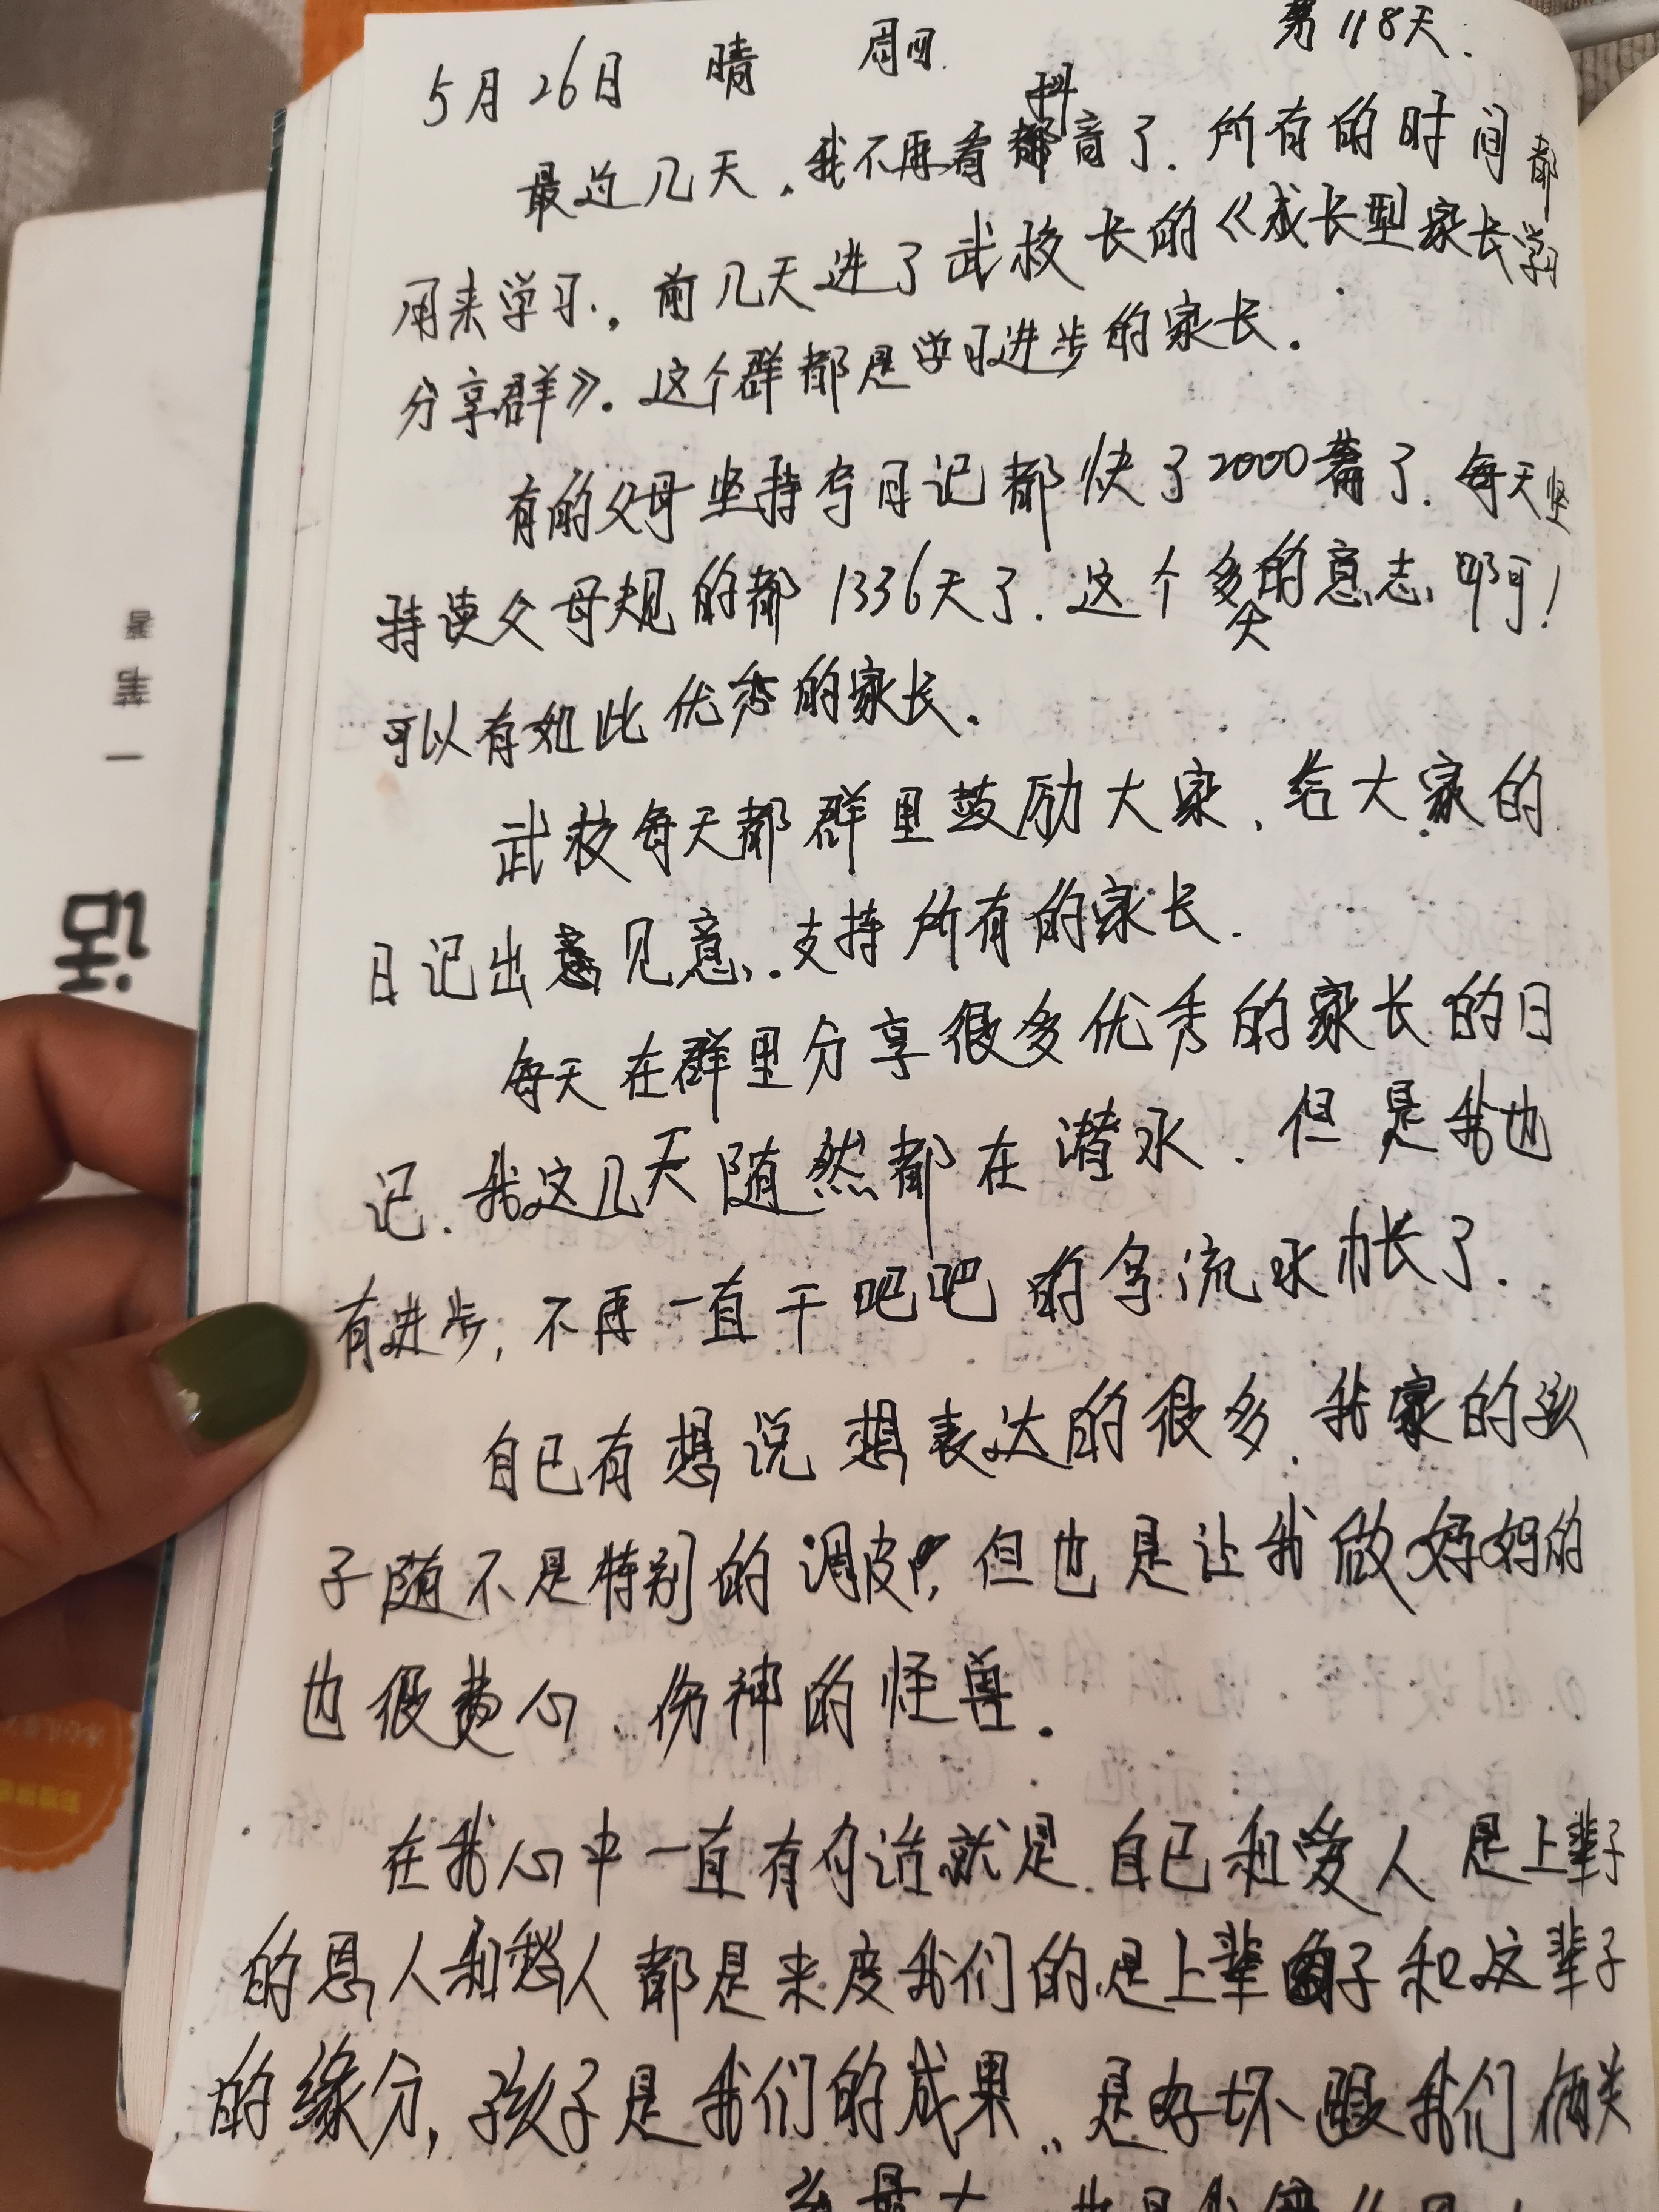 5月26日 晴 周四. 第118天.
最近几天.我不再看抖音了.所有的时间都
用来学习.前几天进了武校长的《成长型家长学习
分享群》.这个群都是学习进步的家长.
有的父母坚持写日记都快了2000篇了.每天坚
持读父母规的都1336天了.这个多大的意志啊!
可以有如此优秀的家长.
武校每天都群里鼓励大家.给大家的
日记出意见意.支持所有的家长.
每天在群里分享很多优秀的家长的日
记.我这几天随然都在潜水.但是我也
有进步,不再一直干吧吧的写流水帐了.
自已有想说想表达的很多.我家的孩
子随不是特别的调皮,但也是让我做妈妈的
也很费心、伤神的怪兽.
在我心中一直有句话就是.自已和爱人是上辈子
的恩人和愁人都是来度我们的.是上辈子和这辈子
的缘分,孩子是我们的成果..是好坏跟我们俩关